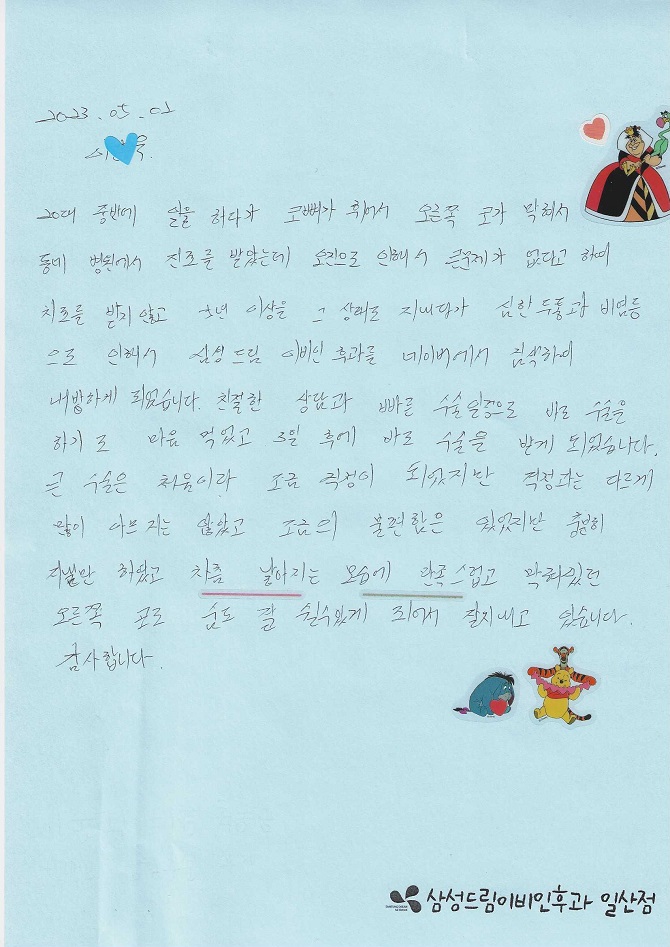 2023. 05. 02
20대 중반에 일을 하다가 코뼈가 휘어서 오른쪽 코가 막혀서
동네 병원에서 진료를 받았는데 오진으로 인해서 큰문제가 없다고 하여
치료를 받지 않고 년 이상을 그 상태로 지내다가 심한 두통과 비염등
으로 인해서 삼성드림 이비인후과를 네이버에서 검색하여
내방하게 되었습니다. 친절한 상담과 빠른 수술일정으로 바로 수술을
하기로 마음 먹었고 3일 후에 바로 수술을 받게 되었습니다.
큰 수술은 처음이라 조금 걱정이 되었지만 걱정과는 다르게
많이 아프지는 않았고 조금의 불편함은 있었지만 충분히
지낼만 하였고 차츰 나아지는 모습에 만족스럽고 막혀있던
오른쪽 코로 숨도 잘 쉴수있게 되어서 잘지내고 있습니다.
감사합니다.
삼성드림이비인후과 일산점